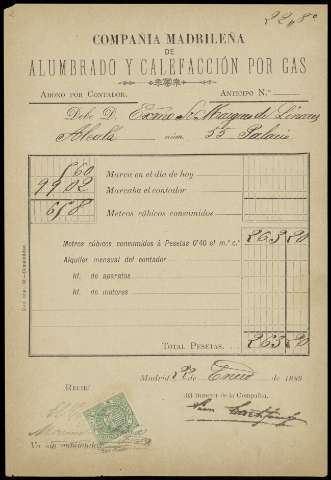 COMPAÑÍA MADRILEÑA
DE
ALUMBRADO Y CALEFACCIÓN POR GAS
ABONO POR CONTADOR. ANTICIPO N.º
Debe D. Excmo Sr. Marqués de Linares
Alcalá núm. 55 Palacio
560 Marca en el día de hoy
9902 Marcaba el contador
658 Metros cúbicos consumidos
Metros cúbicos consumidos á Pesetas 0'40 el m.³ c.º 263 20
Alquiler mensual del contador
Id. de aparatos
Id. de motores
TOTAL PESETAS 263 20
Madrid 22 de Enero de 1889
RECIBÍ El Director de la Compañía,